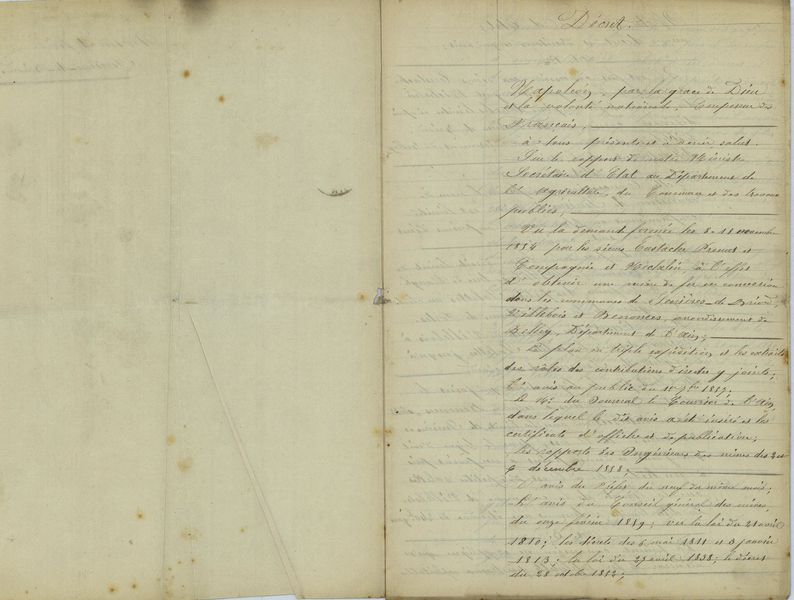 Décret.
Napoléon, par la grace de Dieu
et la volonté nationale, Empereur des
Français,
à tous présents et à venir salut.
Sur le rapport de notre Ministre
Secrétaire d'Etat au Département de
l'Agriculture, du Commerce et des travaux
publics,
Vu la demande formée les 8 11 novembre
1854 par les sieurs Eustache et
Compagnie et à l'effet
d'obtenir une mine de fer en concession
dans les communes de Serrières de Briord,
Villebois et Benonces, arrondissement de
Belley, Département de l'Ain;
Le plan en triple expédition et les extraits
des rôles des contributions directes y joints;
L'avis au public du 1857;
Le No. du Journal le Courrier de l'Ain,
dans lequel le dit avis a été inséré et les
certificats d'affiche et de publication;
Les rapports des Ingénieurs des mines des
décembre 1858;
L'avis du Préfet du neuf du même mois;
L'avis du Conseil général des mines,
du onze février 1859; vu la loi du 21 avril
1810; les décrets des 6 mai 1811 et 3 janvier
1813; la loi du 27 avril 1838; le décret
du 23 octobre 1852;